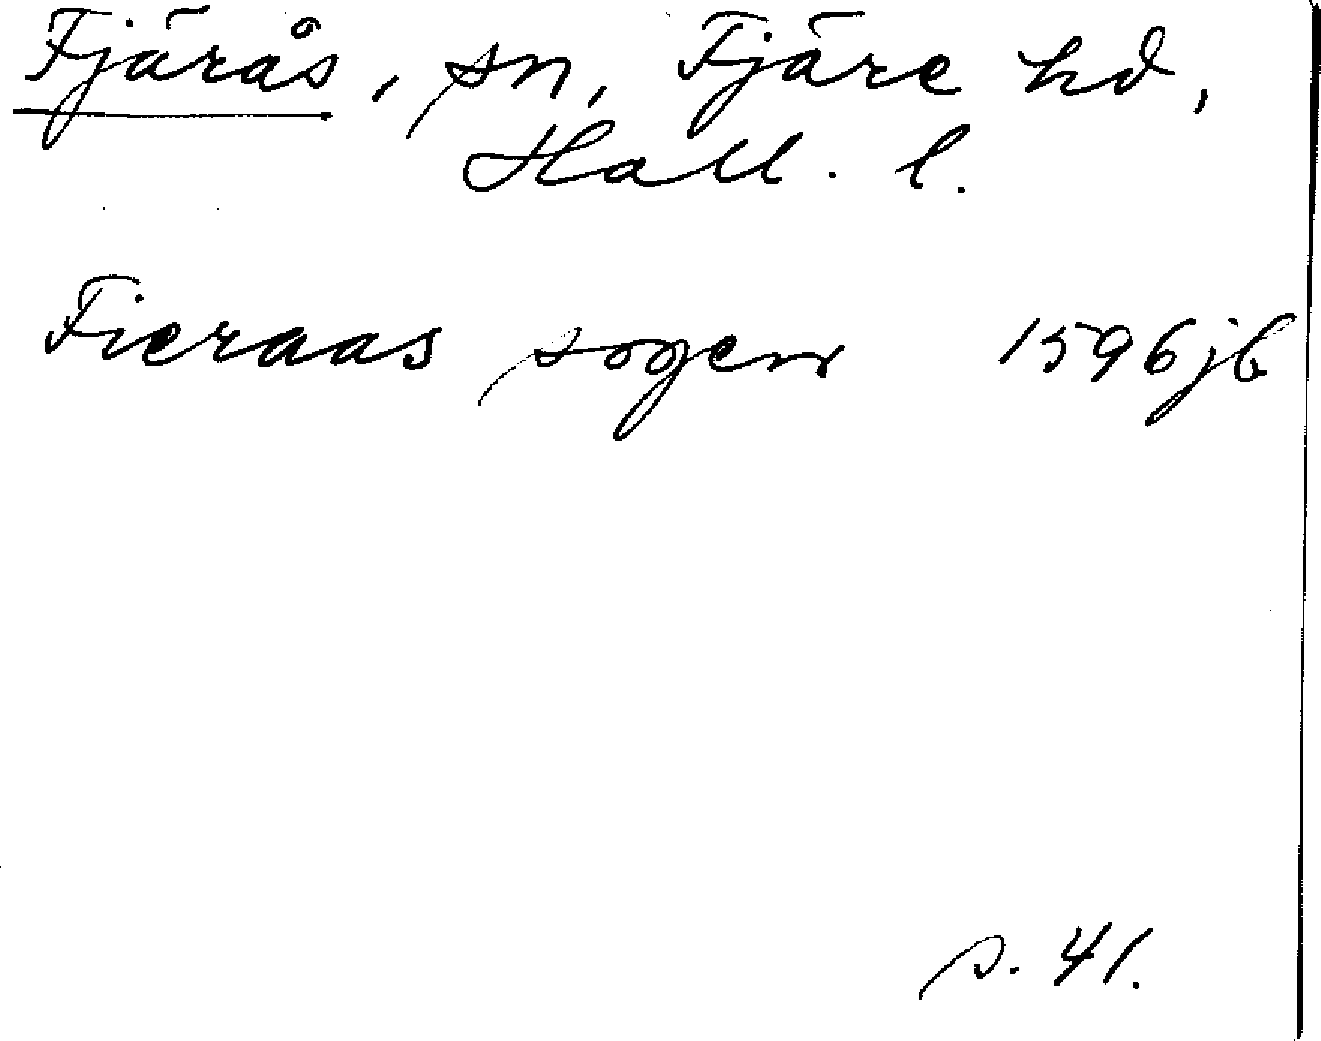 Fjärås, sn, Fjäre hd,
Hall. l.
Fieraas sogen 1596 jb
s. 41.